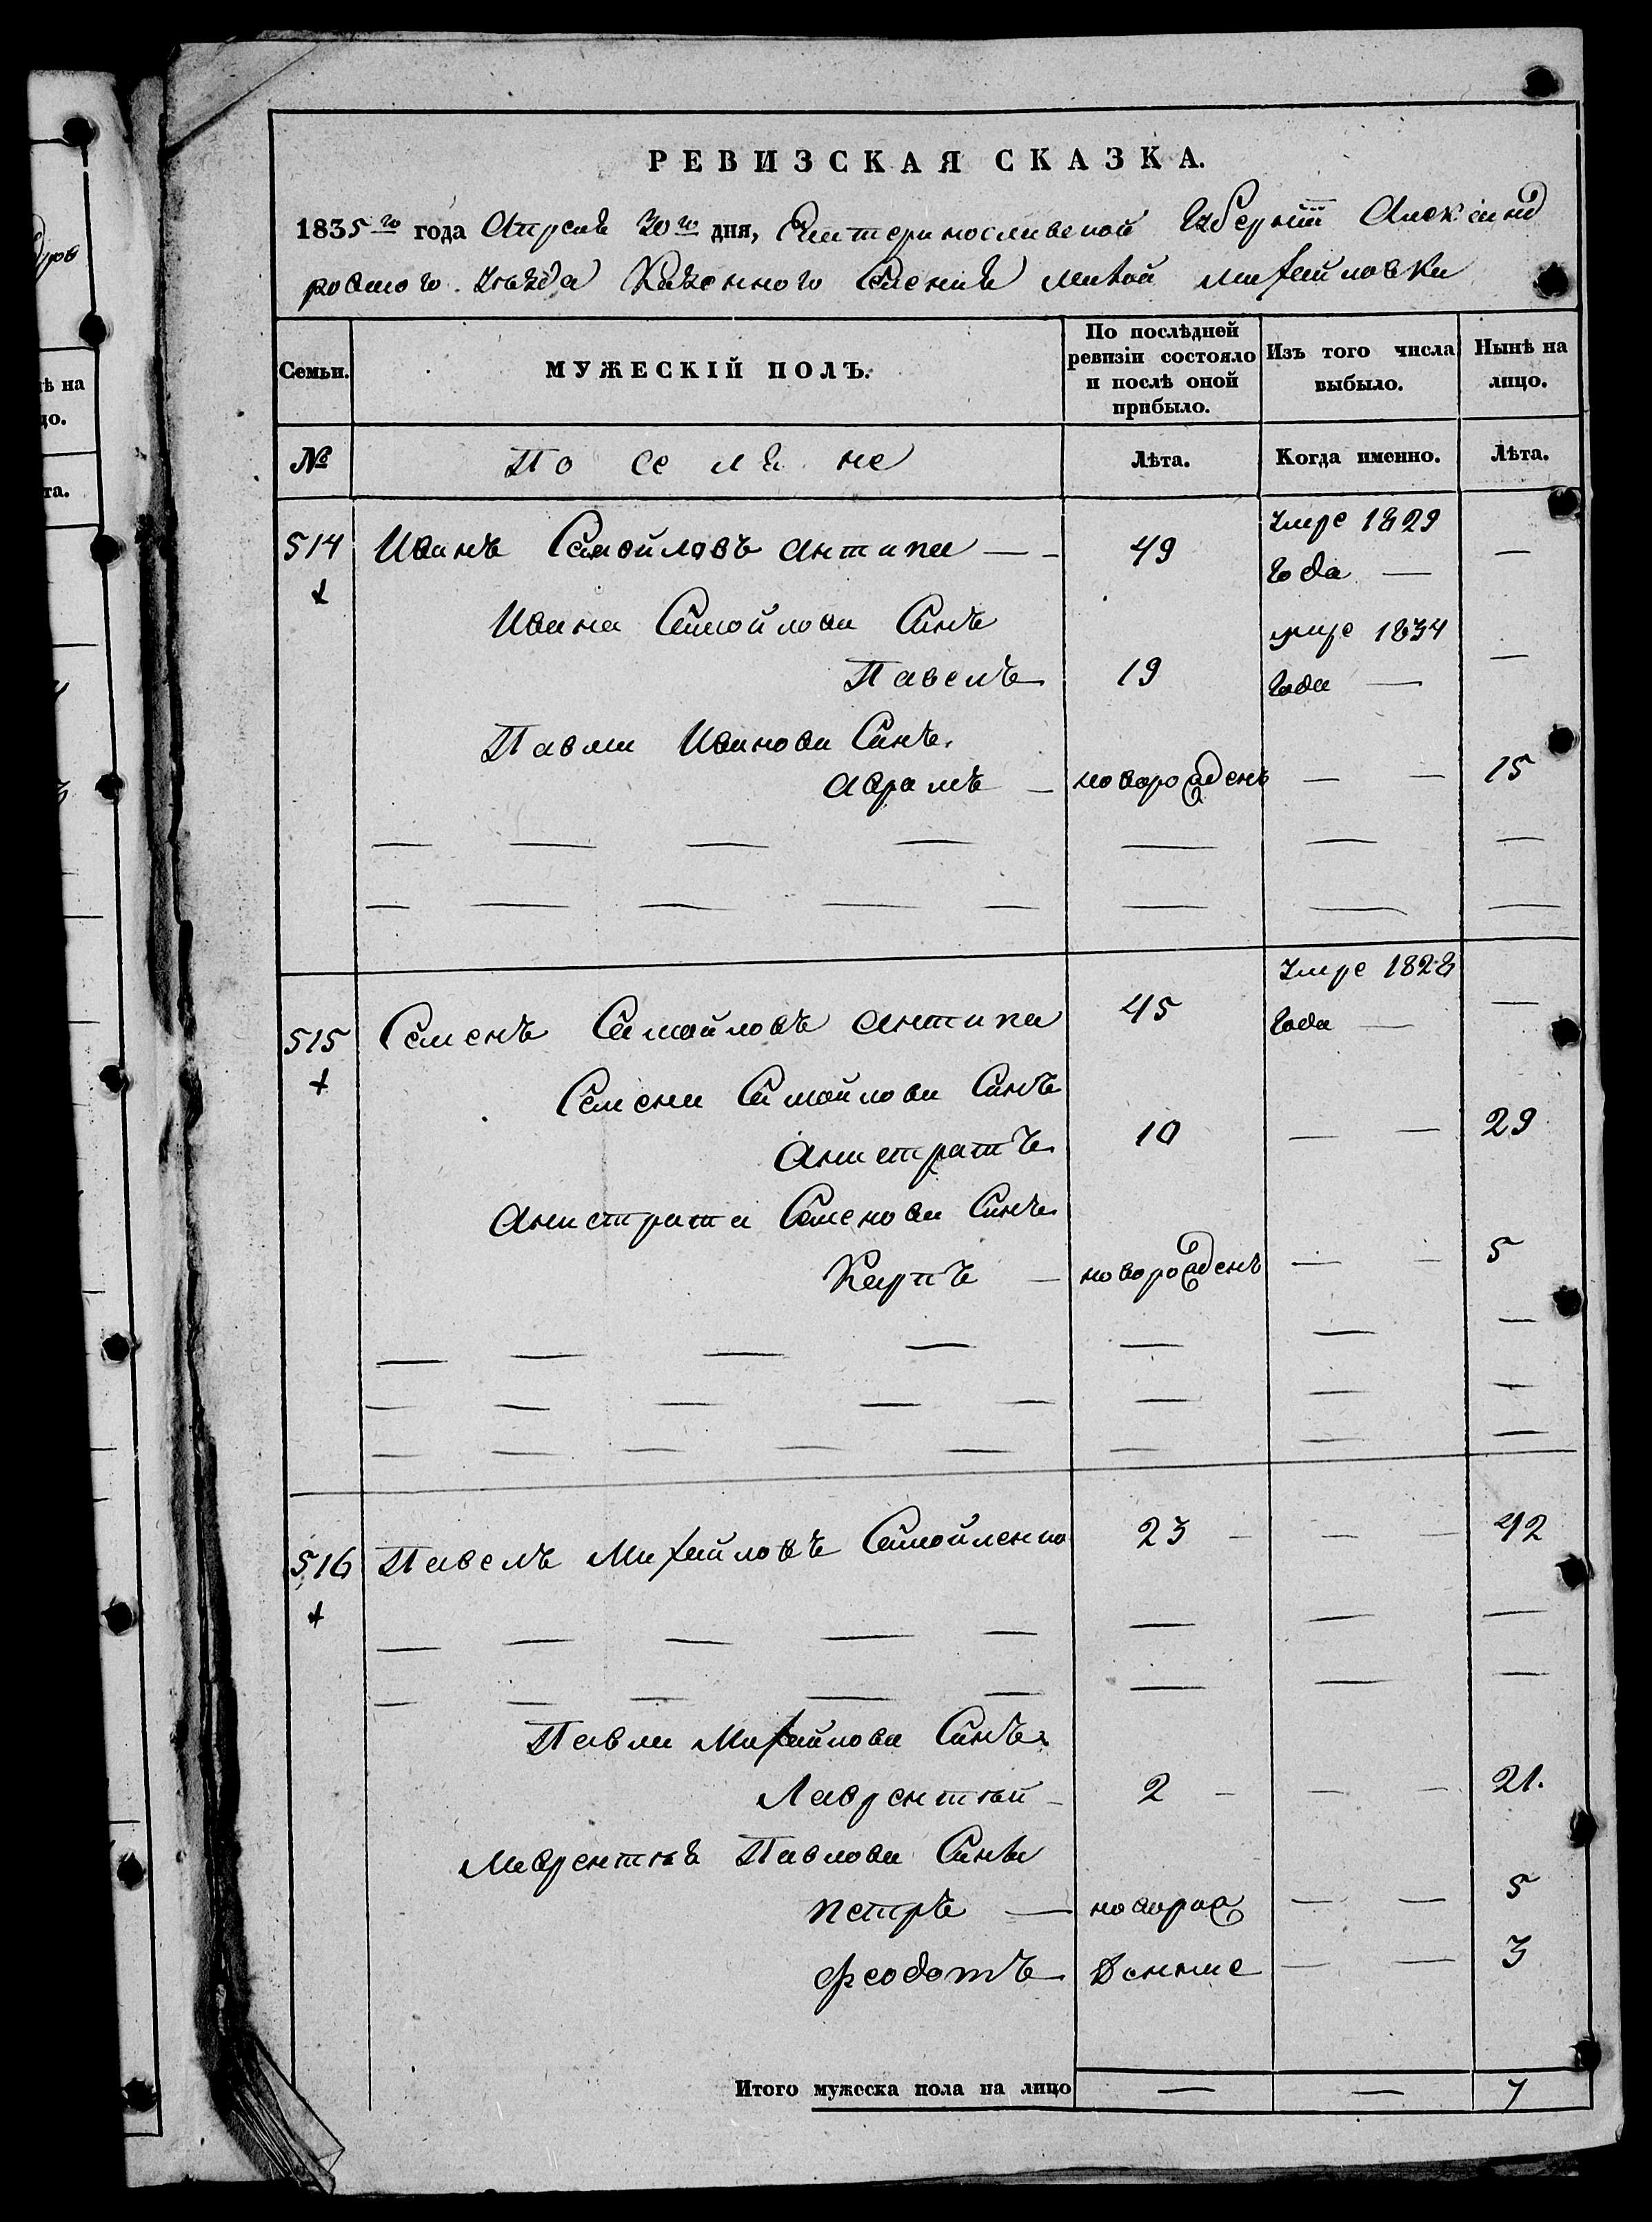 РЕВИЗСКАЯ СКАЗКА.
1835го года Апреля 30го дня, Екатеринославской Губернии Александ
ровского уезда Казенного Селения Малой Михайловки
Семьи.
МУЖЕСКІЙ ПОЛЪ.
По послѣдней ревизіи состояло и послѣ оной прибыло.
Изъ того числа выбыло.
Нынѣ на лицо.
№
Поселяне
Лѣта.
Когда именно.
Лѣта.
514 Иванъ Самойловъ Антипа — 49 умре 1829 года — —
Ивана Самойлова Синъ
Павелъ 19 умре 1834 года — —
Павла Иванова Синъ
Аврамъ — новорожденъ — — 15
515 Семенъ Самойловъ Антипа 45 умре 1828 года — —
Семена Самойлова Синъ
Анистратъ 10 — — 29
Анистрата Семенова Синъ
Карпъ — новорожденъ — — 5
516 Павелъ Михайловъ Самойленко 23 — — — 42
Павла Михайлова Синъ
Лаврентий — 2 — — — 21.
Лаврентия Павлова Сини
Петръ — новорож — — 5
Феодотъ денние — — 3
Итого мужеска пола на лицо — — 7
ѣ на
цо.
та.
дров